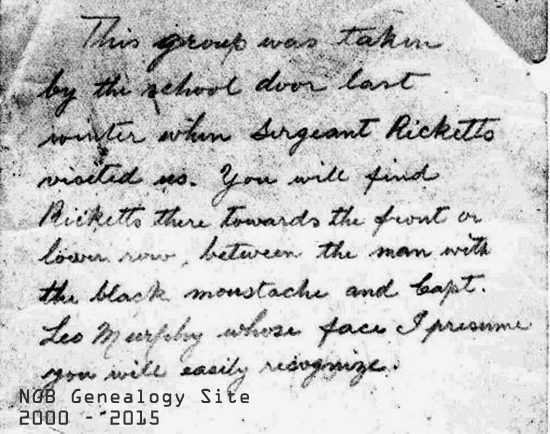 This group was taken
by the school door last
winter when Sergeant Ricketts
visited us. You will find
Ricketts there towards the front or
lower row, between the man with
the black moustache and Capt.
Leo Murphy whose face I presume
you will easily recognize.
NOB Genealogy Site
2000 - 2015